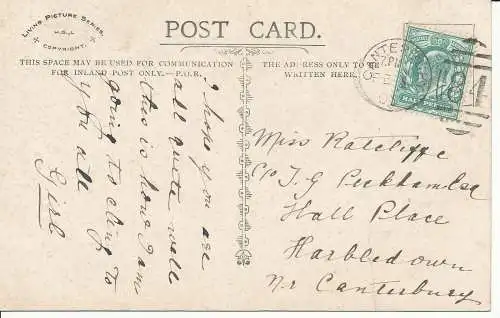 LIVING PICTURE SERIES.
H.G.L
COPYRIGHT.
POST CARD.
THIS SPACE MAY BE USED FOR COMMUNICATION
FOR INLAND POST ONLY.—P.O.R.
THE ADDRESS ONLY TO
WRITTEN HERE.
I hope you are
all quite well
this is how I am
going to cling to
you all
Girl
Miss Ratcliffe
c/o J. G Peckham Esq
Hall Place
Harbledown
nr Canterbury